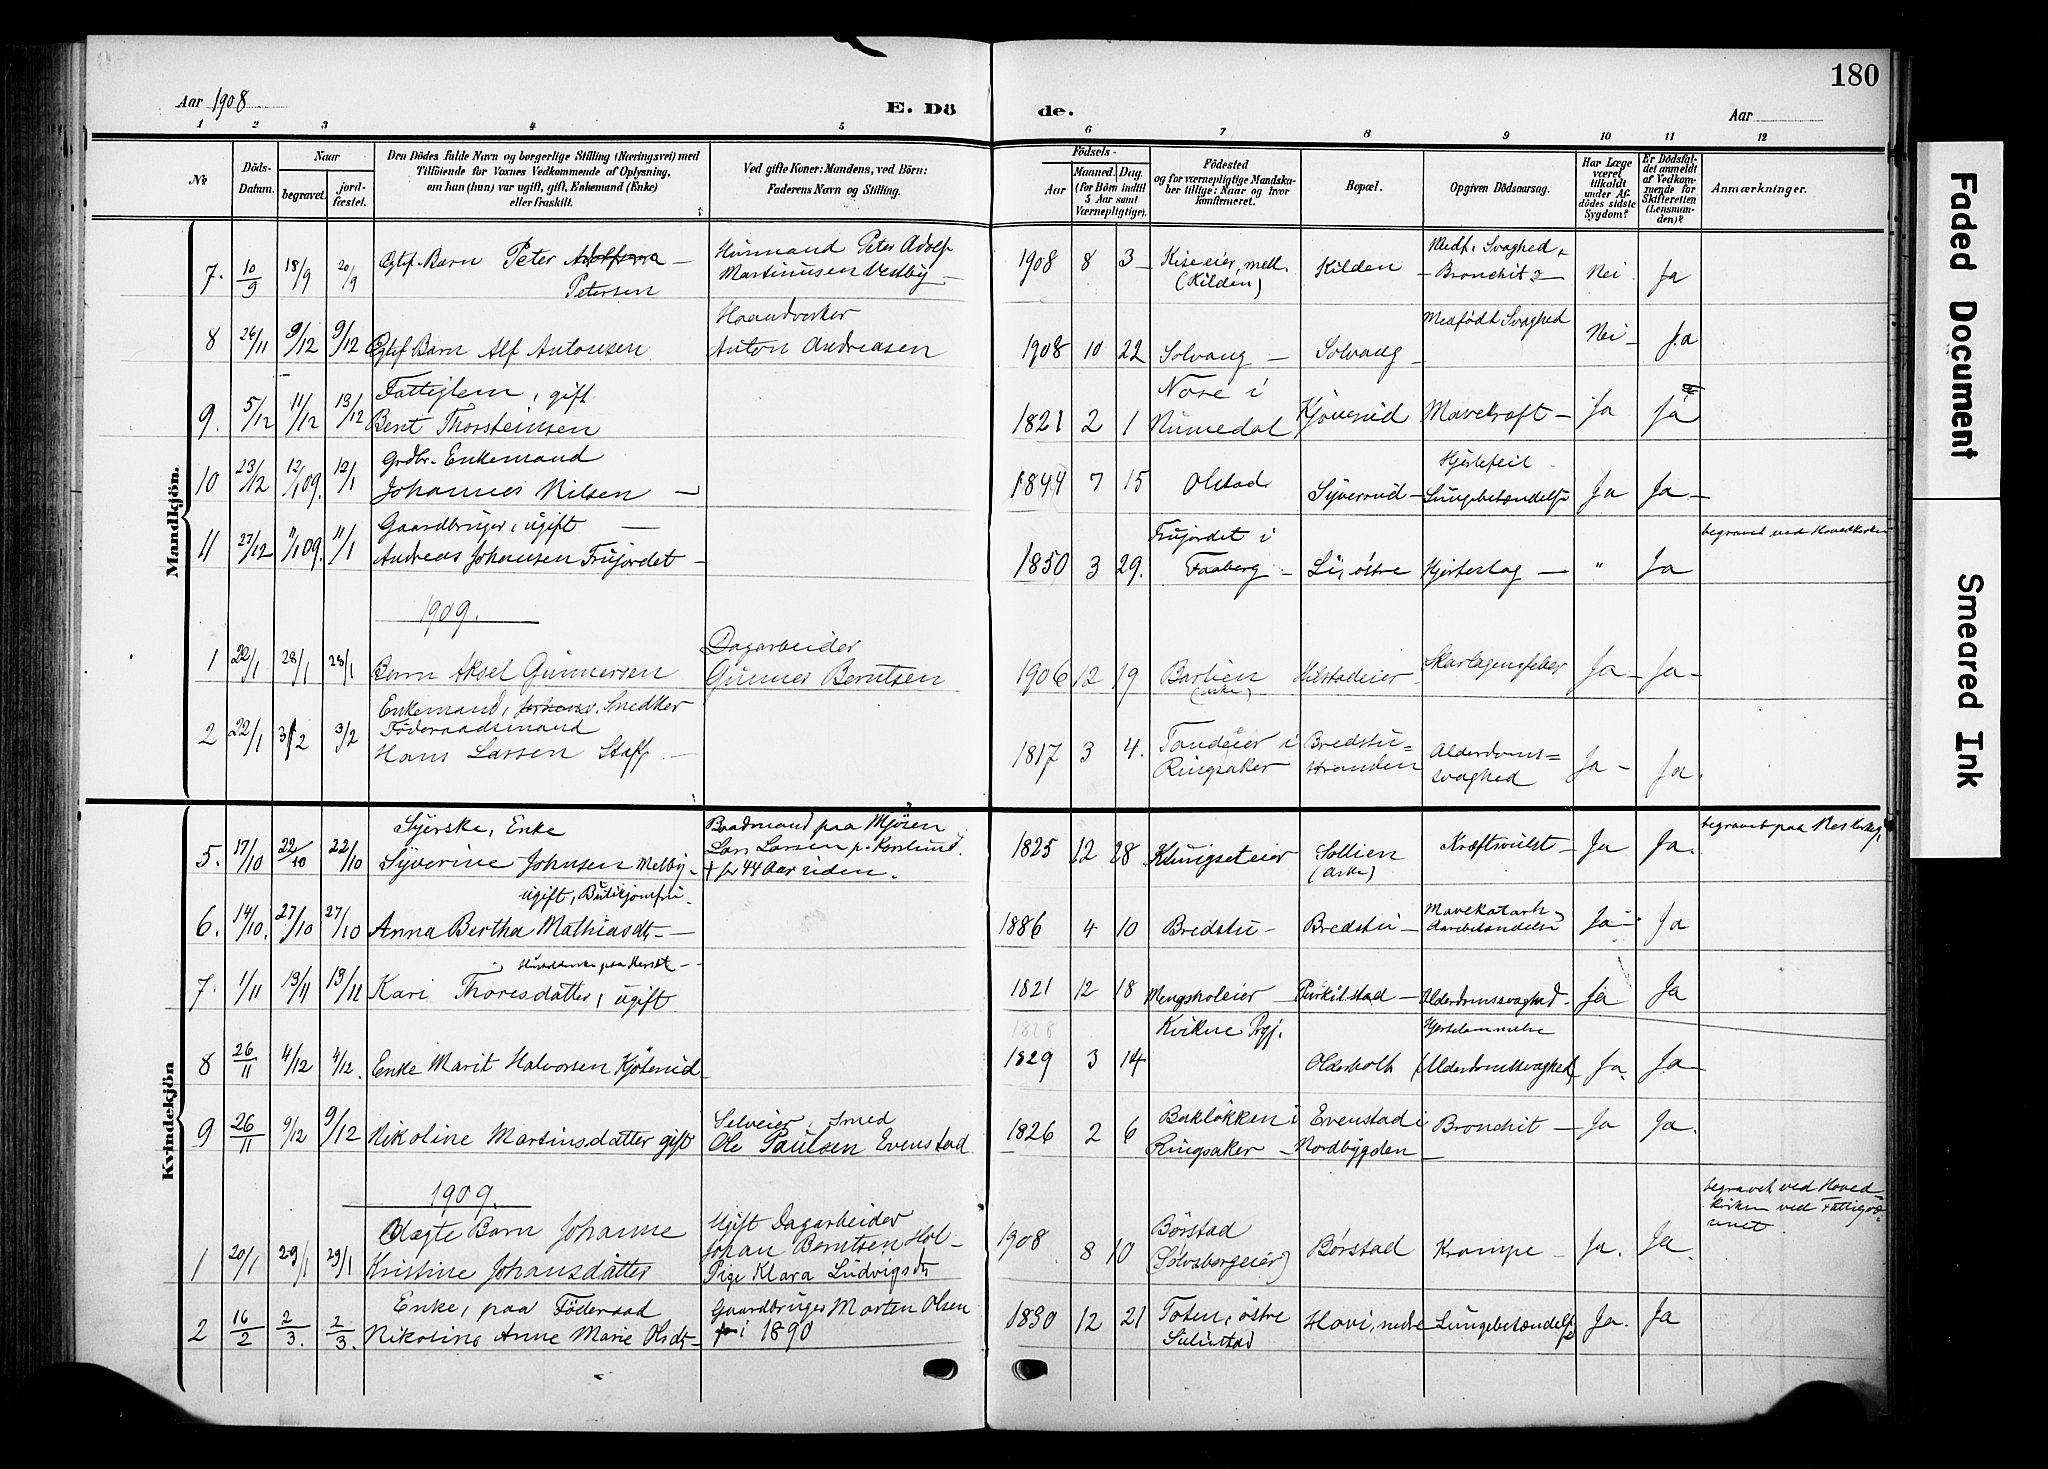 180
Aar 1908
E. Döde.
Aar
1 2 3 4 5 6 7 8 9 10 11 12
№
Döds-Datum.
Naar
begravet.
jordfæstet.
Den Dödes fulde Navn og borgerlige Stilling (Næringsvei) med
Tilföiende for Voxnes Vedkommende af Oplysning,
om han (hun) var ugift, gift, Enkemand (Enke)
eller fraskilt.
Ved gifte Koner: Mandens, ved Börn:
Faderens Navn og Stilling.
Födsels-
Aar
Maaned. Dag.
(for Börn indtil
5 Aar samt
Værnepligtige).
Födested
og for værnepligtige Mandskaber tillige: Naar og hvor
konfirmeret.
Bopæl.
Opgiven Dödsaarsag.
Har Læge
været
tilkaldt
under Afdödes sidste
Sygdom?
Er Dödsfaldet anmeldt
af Vedkommende for
Skifteretten
(Lensmanden)?
Anmærkninger.
Mandkjön.
7. 10/9 18/9 20/9 Egtef. Barn Peter Petersen
Husmand Peter Adolf
Martinusen Vestby
1908 8 3 Kiseeier, mell. (Kilden) Kilden Medf. Svaghed, Bronchit Nei Ja
8 26/11 9/12 9/12 Egtef Barn Alf Antonsen
Haandverker
Anton Andreasen
1908 10 22 Solvang Solvang Medfödt Svaghed Nei Ja
9. 5/12 11/12 13/12 Fattiglem, gift
Bent Thorsteinsen
1821 2 1 Nore i Numedal Mavekræft Ja Ja
10 23/12 12/1 09. 12/1 Grdbr. Enkemand
Johannes Nilsen
1844 7 15 Olstad Syverud Hjertefeil Lungebetændelse Ja Ja
11 27/12 11/1 09. 11/1 Gaardbruger, ugift
Andreas Johansen Frujordet
1850 3 29. Frujordet i Faaberg Li, östre Hjerteslag " Ja begravet ved Hovedkirken
1909.
1 22/1 28/1 28/1 Barn Aksel Gunnersen
Dagarbeider
Gunner Berntsen
1906 12 19 Barlien Kilstadeier Skarlagensfeber Ja Ja
2 22/1 3/2 3/2 Enkemand, Snedker
Föderaadsmand
Hans Larsen Staff
1817 3 4. Tandeier i Ringsaker Bredstustranden Alderdomssvaghed Ja Ja
Kvindekjön
5. 17/10 22/10 22/10 Syerske, Enke
Syverine Johnsen Melby
Baadmand paa Mjösen
Lars Larsen
+ for 44 Aar siden.
1825 12 28 Klungseteier Sollien Kræftsvulst Ja Ja. begravet paa Nes
6. 14/10. 27/10 27/10 ugift, Butikjomfru
Anna Bertha Mathiasdt.
1886 4 10 Bredstu Bredstu Mavekatarh Ja Ja
7. 1/11 13/11 13/11 Kari Thoresdatter, ugift
1821 12 18 Mengsholeier Purkilstad Alderdomssvaghed Ja Ja
8 26/11 4/12 4/12. Enke Marit Halvorsen Kjöterud
1828
1829 3 14 Kvikne Prgj. Olderholt Hjertelammelse (Alderdomssvaghed) Ja. Ja
9 26/11 9/12 9/12 Nikoline Martinsdatter gift
Selveier, Smed
Ole Paulsen Evenstad
1826 2 6 Baklökken i Ringsaker Evenstad i Nordbygden Bronchit Ja Ja.
1909.
1 20/1 29/1 29/1 Uægte Barn Johanne
Kristine Johansdatter
Ugift Dagarbeider
Johan Berntsen Hol
Pige Klara Ludvigsdt
1908 8 10 Börstad (Sölvsbergeier) Börstad Krampe Ja. Ja. begravet ved Hovedkirken ved Fattigvæsenet
2 16/2 2/3. 2/3. Enke, paa Föderaad
Nikoline Anne Marie Olsdt
Gaardbruger Morten Olsen
i 1890
1830 12 21 Toten, östre Hovi, nedre Lungebetændelse Ja. Ja
Faded Document
Smeared Ink